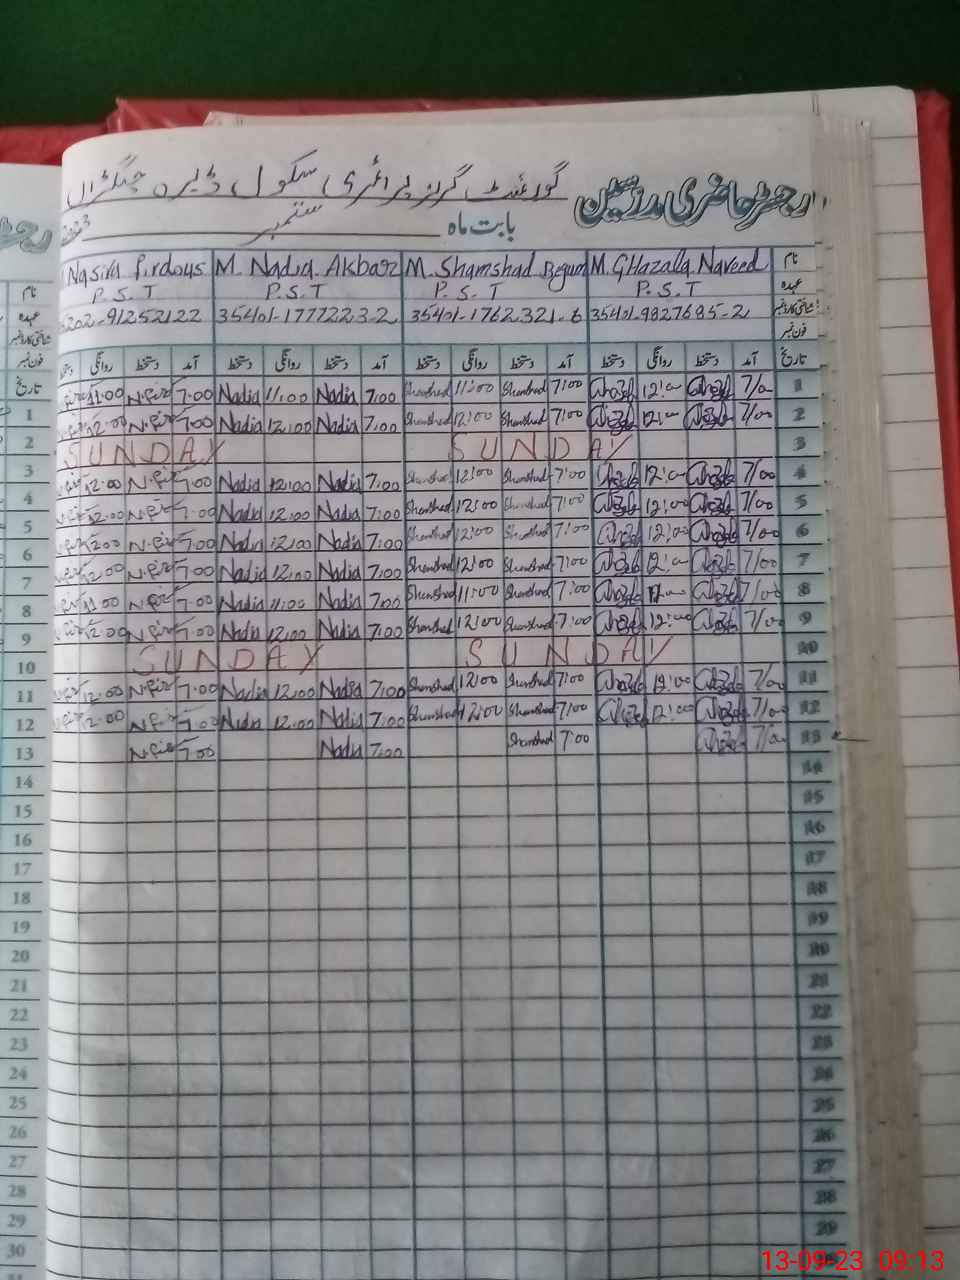 رجسٹر حاضری مدرسین گورنمنٹ گرلز پرائمری سکول ڈیرہ
بابت ماہ ستمبر
نام M. GHazalla Naveed M. Shamshad Begum M. Nadia Akbar Nasira firdous
عہدہ P.S.T P.S.T P.S.T P.S.T
شناختی کارڈ نمبر 35401-9827685-2 35401-1762321-6 35401-1777223-2
فون نمبر
تاریخ آمد دستخط روانگی دستخط آمد دستخط روانگی دستخط آمد دستخط روانگی دستخط آمد دستخط روانگی
1 7/00 12:00 7:00 Shamshad 11:00 Shamshad 7:00 Nadia 11:00 Nadia 7:00 N.fir 11:00
2 7/00 12:00 7:00 Shamshad 12:00 Shamshad 7:00 Nadia 12:00 Nadia 7:00 N.fir 12:00
3 SUNDAY SUNDAY
4 7/00 12:00 7:00 Shamshad 12:00 Shamshad 7:00 Nadia 12:00 Nadia 7:00 N.fir 12:00
5 7/00 12:00 7:00 Shamshad 12:00 Shamshad 7:00 Nadia 12:00 Nadia 7:00 N.fir 12:00
6 7/00 12:00 7:00 Shamshad 12:00 Shamshad 7:00 Nadia 12:00 Nadia 7:00 N.fir 12:00
7 7/00 12:00 7:00 Shamshad 12:00 Shamshad 7:00 Nadia 12:00 Nadia 7:00 N.fir 12:00
8 7/00 12:00 7:00 Shamshad 11:00 Shamshad 7:00 Nadia 11:00 Nadia 7:00 N.fir 11:00
9 7/00 12:00 7:00 Shamshad 12:00 Shamshad 7:00 Nadia 12:00 Nadia 7:00 N.fir 12:00
10 SUNDAY SUNDAY
11 7/00 12:00 7:00 Shamshad 12:00 Shamshad 7:00 Nadia 12:00 Nadia 7:00 N.fir 12:00
12 7/00 12:00 7:00 Shamshad 12:00 Shamshad 7:00 Nadia 12:00 Nadia 7:00 N.fir 12:00
13 7/00 7:00 Shamshad 7:00 Nadia 7:00 N.fir
14
15
16
17
18
19
20
21
22
23
24
25
26
27
28
29
رجسٹر
نام
عہدہ
شناختی کارڈ نمبر
فون نمبر
تاریخ
1
2
3
4
5
6
7
8
9
10
11
12
13
14
15
16
17
18
19
20
21
22
23
24
25
26
27
28
29
30
13-09-23 09:13